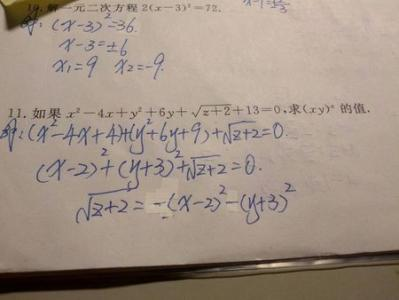 10. 解一元二次方程 2(x-3)²=72.
解: (x-3)²=36.
x-3=±6
x₁=9 x₂=-9.
11. 如果 x²-4x+y²+6y+√(z+2)+13=0,求(xy)ᶻ 的值.
解: (x²-4x+4)+(y²+6y+9)+√(z+2)=0.
(x-2)²+(y+3)²+√(z+2)=0.
√(z+2)=-(x-2)²-(y+3)²